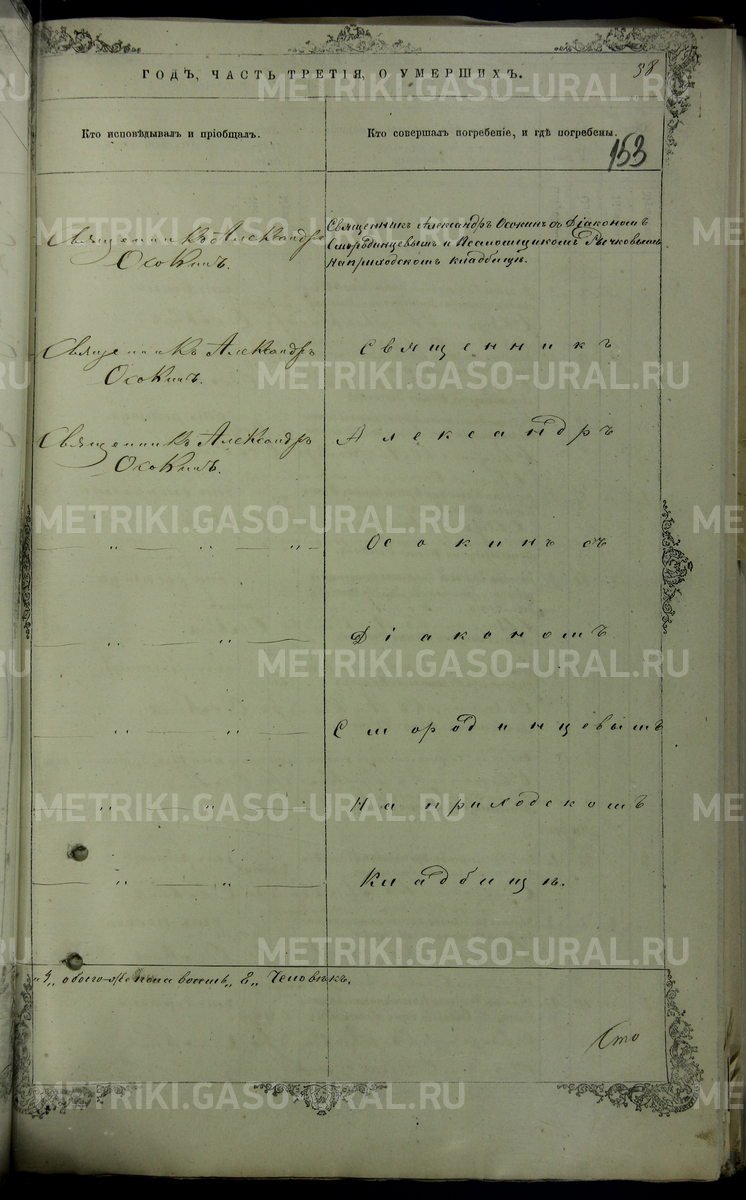 38
ГОДЪ, ЧАСТЬ ТРЕТІЯ, О УМЕРШИХЪ.
METRIKI.GASO-URAL.RU
Кто исповѣдывалъ и пріобщалъ.
Кто совершалъ погребеніе, и гдѣ погребены.
153
Священникъ Александръ
Осокинъ.
Священникъ Александръ Осокинъ съ Діакономъ
Смородинцевымъ и Псаломщикомъ Рычковымъ
На приходскомъ кладбищѣ.
Священникъ Александръ
Осокинъ.
Священникъ
METRIKI.GASO-URAL.RU
Священникъ Александръ
Осокинъ.
Александръ
METRIKI.GASO-URAL.RU
„ „ „
Осокинъ съ
„ „
Діакономъ
METRIKI.GASO-URAL.RU
„ „
Смородинцевымъ
METRIKI.GASO-URAL.RU
„ „
На приходскомъ
„ „
Кладбищѣ.
METRIKI.GASO-URAL.RU
обоего же пола восемь „8„ Человѣкъ.
METRIKI.GASO-URAL.RU